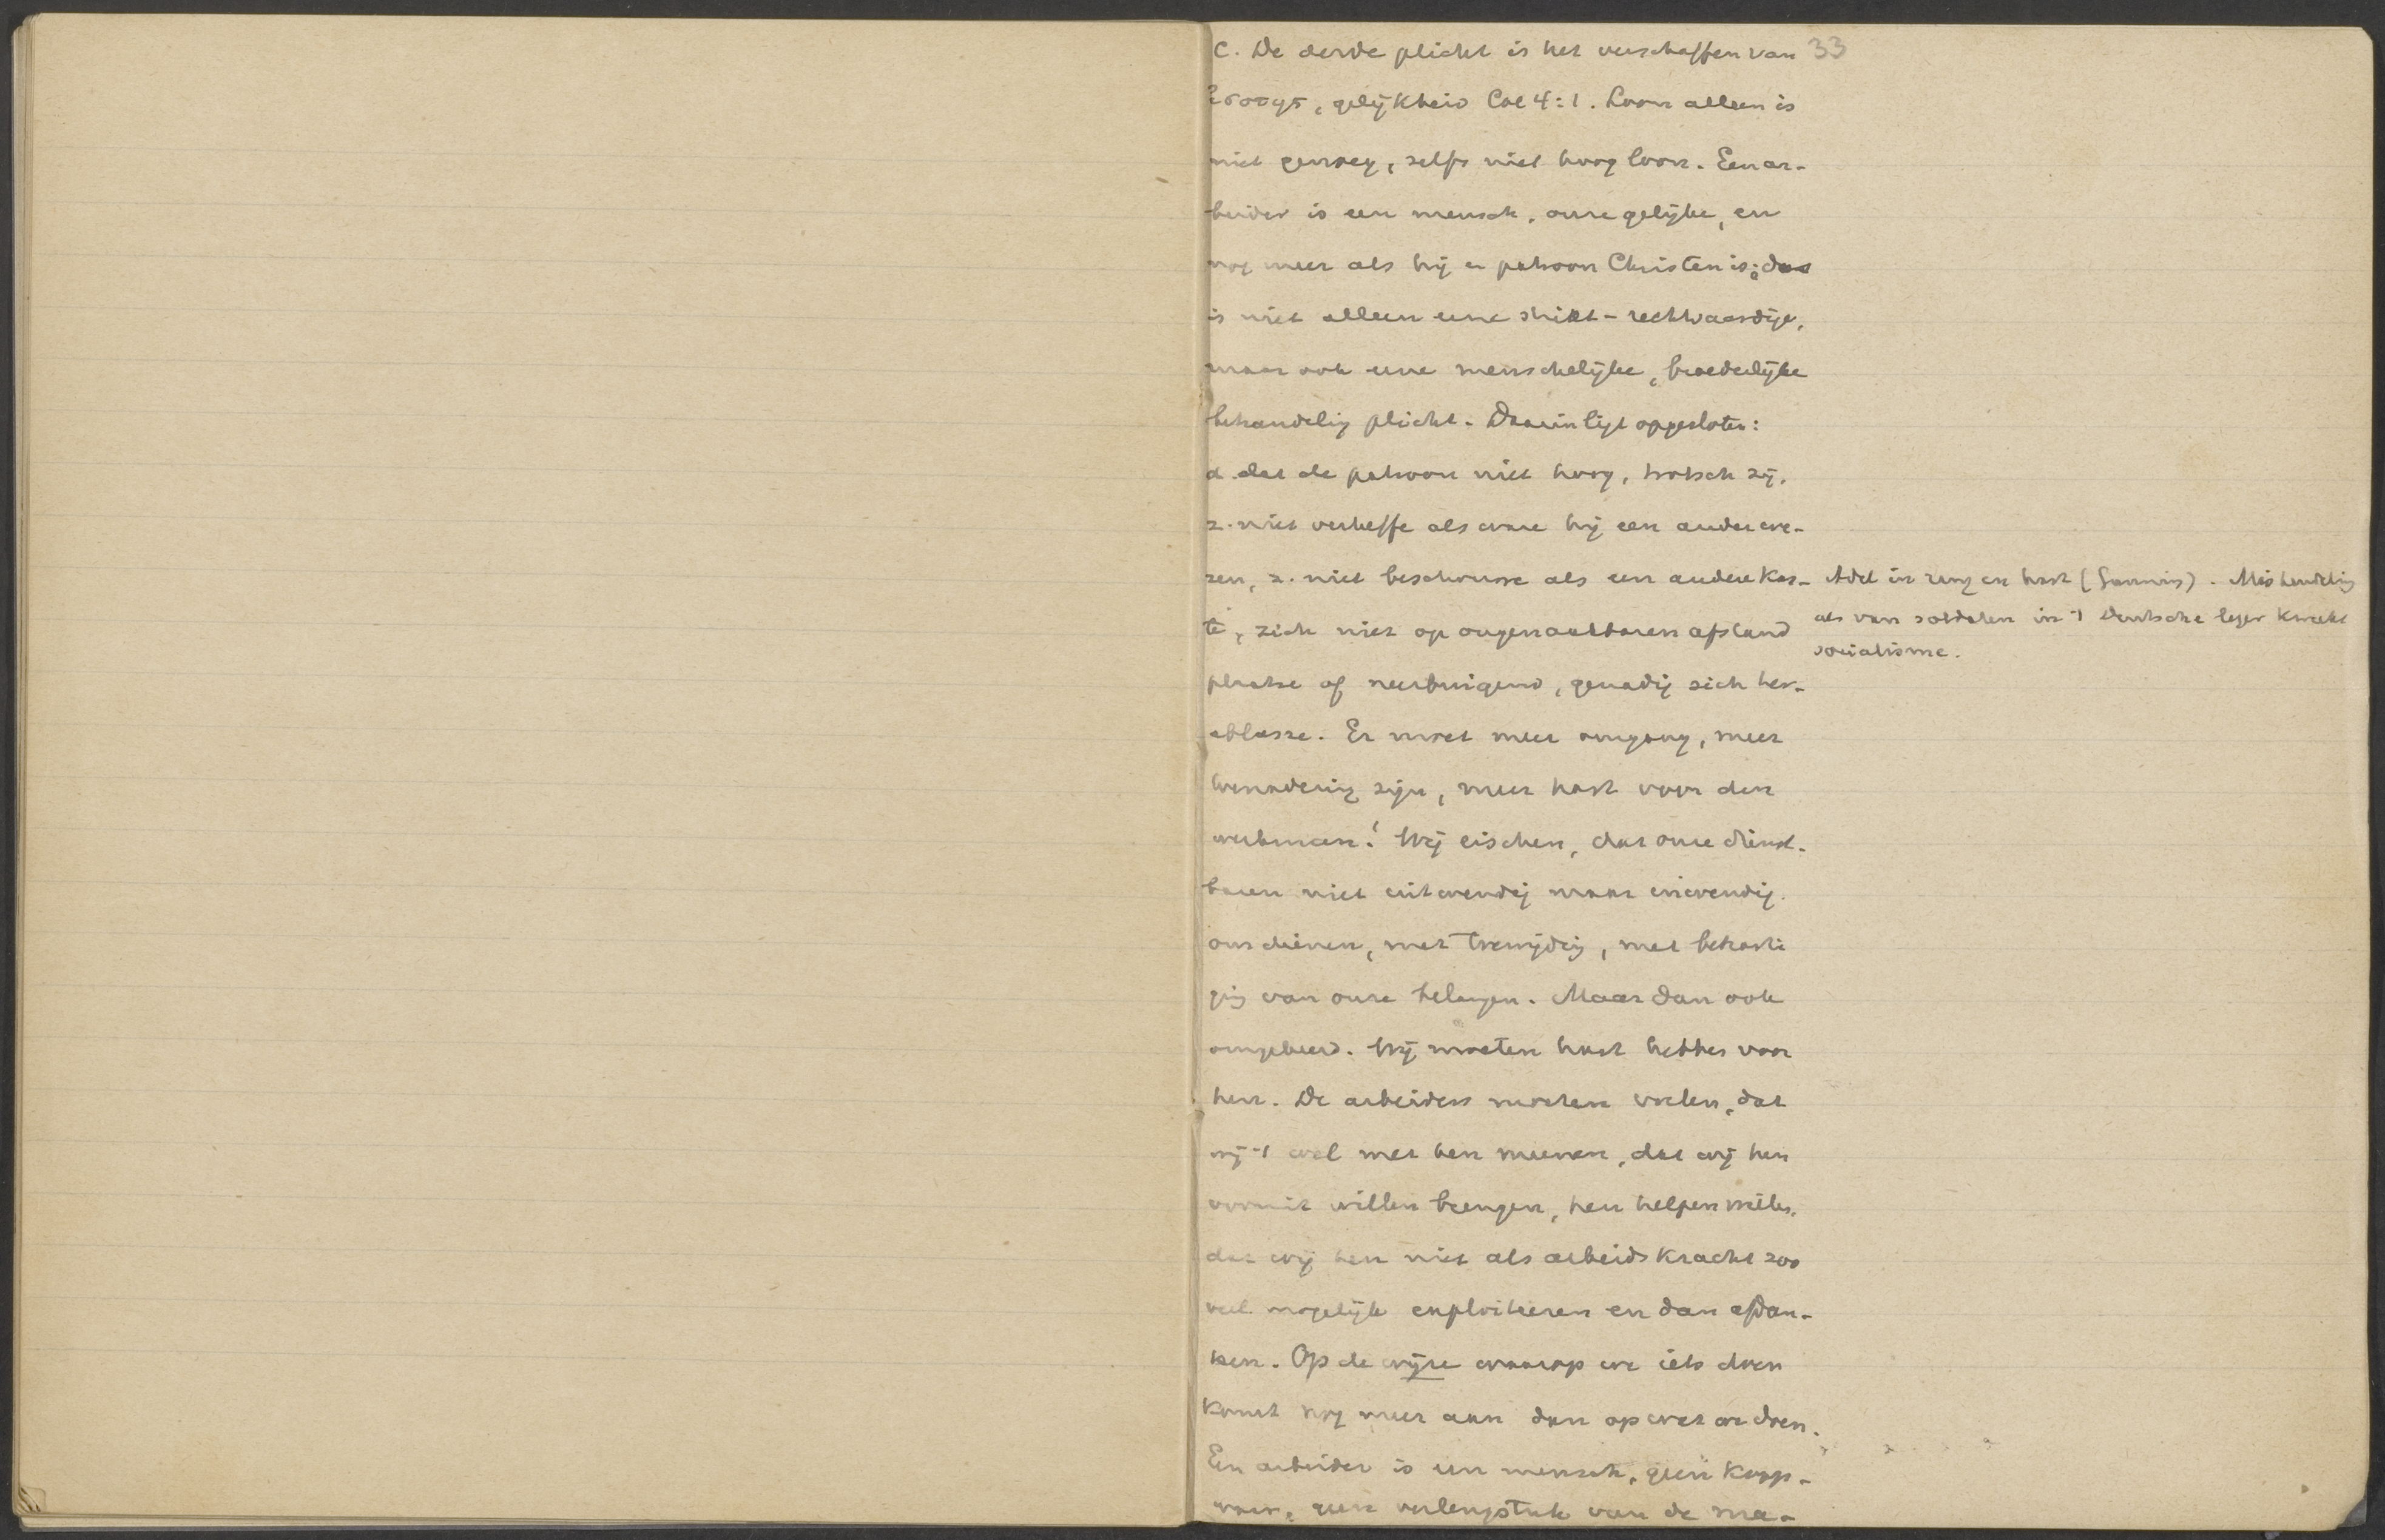 C. De derde plicht is het verschaffen van 33
ἰσοτης, gelijkheid Col 4:1. Loon alleen is
niet genoeg, zelfs niet hoog loon. Een ar-
beider is een mensch, onze gelijke, en
nog meer als hij en patroon Christen is; dus
is niet alleen eene strikt-rechtvaardige,
maar ook eene menschelijke, broederlijke
behandelig plicht. Daarin ligt opgesloten:
a. dat de patroon niet hoog, trotsch zij,
z. niet verheffe als ware hij een ander we-
zen, z. niet beschouwe als een andere kas-
te, zich niet op ongenaakbaren afstand
plaatse of neerbuigend, genadig zich her-
ablasse. Er moet meer omgang, meer
toenadering zijn, meer hart voor den
werkman! Wij eischen, dat onze dienst-
baren niet uitwendig maar inwendig
ons dienen, met toewijdig, met beharti
gig van onze belangen. Maar dan ook
omgekeerd. Wij moeten hart hebben voor
hen. De arbeiders moeten voelen, dat
wij 't wel met hen meenen, dat wij hen
vooruit willen brengen, hen helpen willen,
dat wij hen niet als arbeidskracht zoo
veel mogelijk exploiteeren en dan afdan-
ken. Op de wijze waarop we iets doen
komt nog meer aan dan op wat we doen.
Een arbeider is een mensch, geen koop-
waar, geen verlengstuk van de ma-
Adel in rang en hart (). Mishandelig
als van soldaten in 't Duitsche leger kweekt
socialisme.